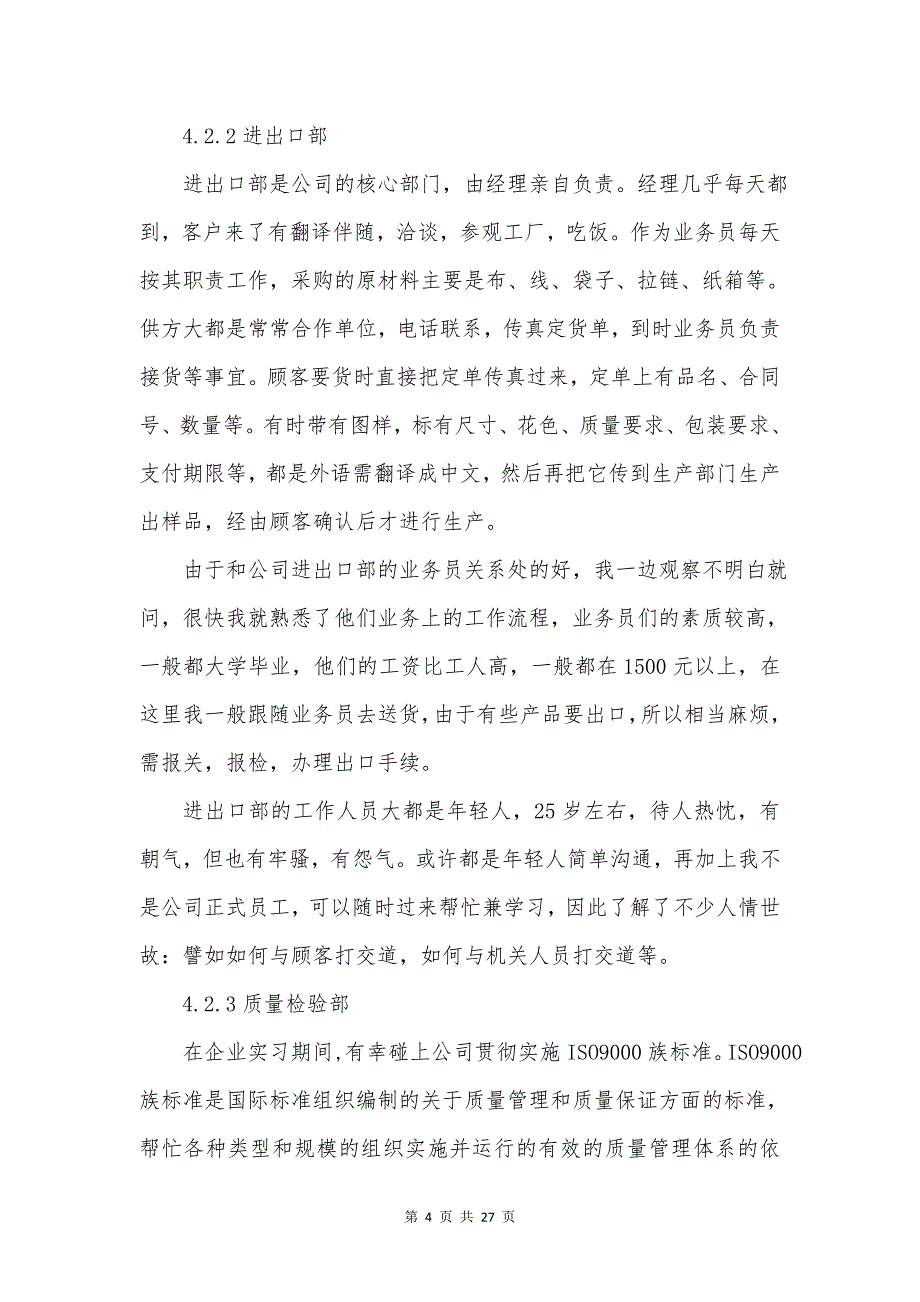 4.2.2 进出口部
进出口部是公司的核心部门，由经理亲自负责。经理几乎每天都
到，客户来了有翻译伴随，洽谈，参观工厂，吃饭。作为业务员每天
按其职责工作，采购的原材料主要是布、线、袋子、拉链、纸箱等。
供方大都是常常合作单位，电话联系，传真定货单，到时业务员负责
接货等事宜。顾客要货时直接把定单传真过来，定单上有品名、合同
号、数量等。有时带有图样，标有尺寸、花色、质量要求、包装要求、
支付期限等，都是外语需翻译成中文，然后再把它传到生产部门生产
出样品，经由顾客确认后才进行生产。
由于和公司进出口部的业务员关系处的好，我一边观察不明白就
问，很快我就熟悉了他们业务上的工作流程，业务员们的素质较高，
一般都大学毕业，他们的工资比工人高，一般都在 1500 元以上，在
这里我一般跟随业务员去送货，由于有些产品要出口，所以相当麻烦，
需报关，报检，办理出口手续。
进出口部的工作人员大都是年轻人，25 岁左右，待人热忱，有
朝气，但也有牢骚，有怨气。或许都是年轻人简单沟通，再加上我不
是公司正式员工，可以随时过来帮忙兼学习，因此了解了不少人情世
故：譬如如何与顾客打交道，如何与机关人员打交道等。
4.2.3 质量检验部
在企业实习期间，有幸碰上公司贯彻实施 ISO9000 族标准。ISO9000
族标准是国际标准组织编制的关于质量管理和质量保证方面的标准，
帮忙各种类型和规模的组织实施并运行的有效的质量管理体系的依
第 4 页 共 27 页